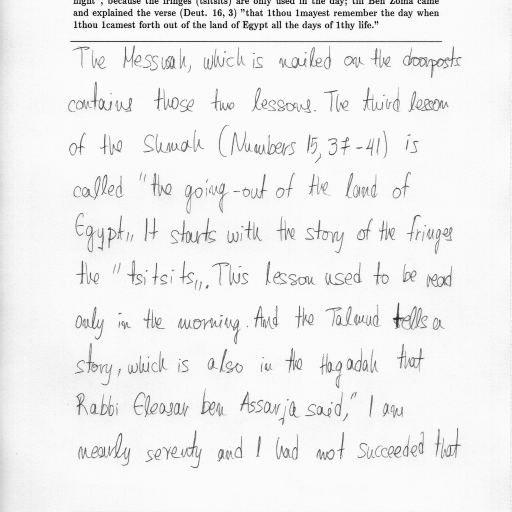 night", because the fringes (tsitsits) are only used in the day; till Ben Zoma came
and explained the verse (Deut. 16, 3) "that 1thou 1mayest remember the day when
1thou 1camest forth out of the land of Egypt all the days of 1thy life."
The Messuah, which is nailed on the doorposts
contains those two lessons. The third lesson
of the Shmah (Numbers 15, 37-41) is
called "the going-out of the land of
Egypt„ It starts with the story of the fringes
the "tsitsits„. This lesson used to be read
only in the morning. And the Talmud tells a
story, which is also in the Hagadah that
Rabbi Eleasar ben Assarja said," I am
nearly seventy and I had not succeeded that